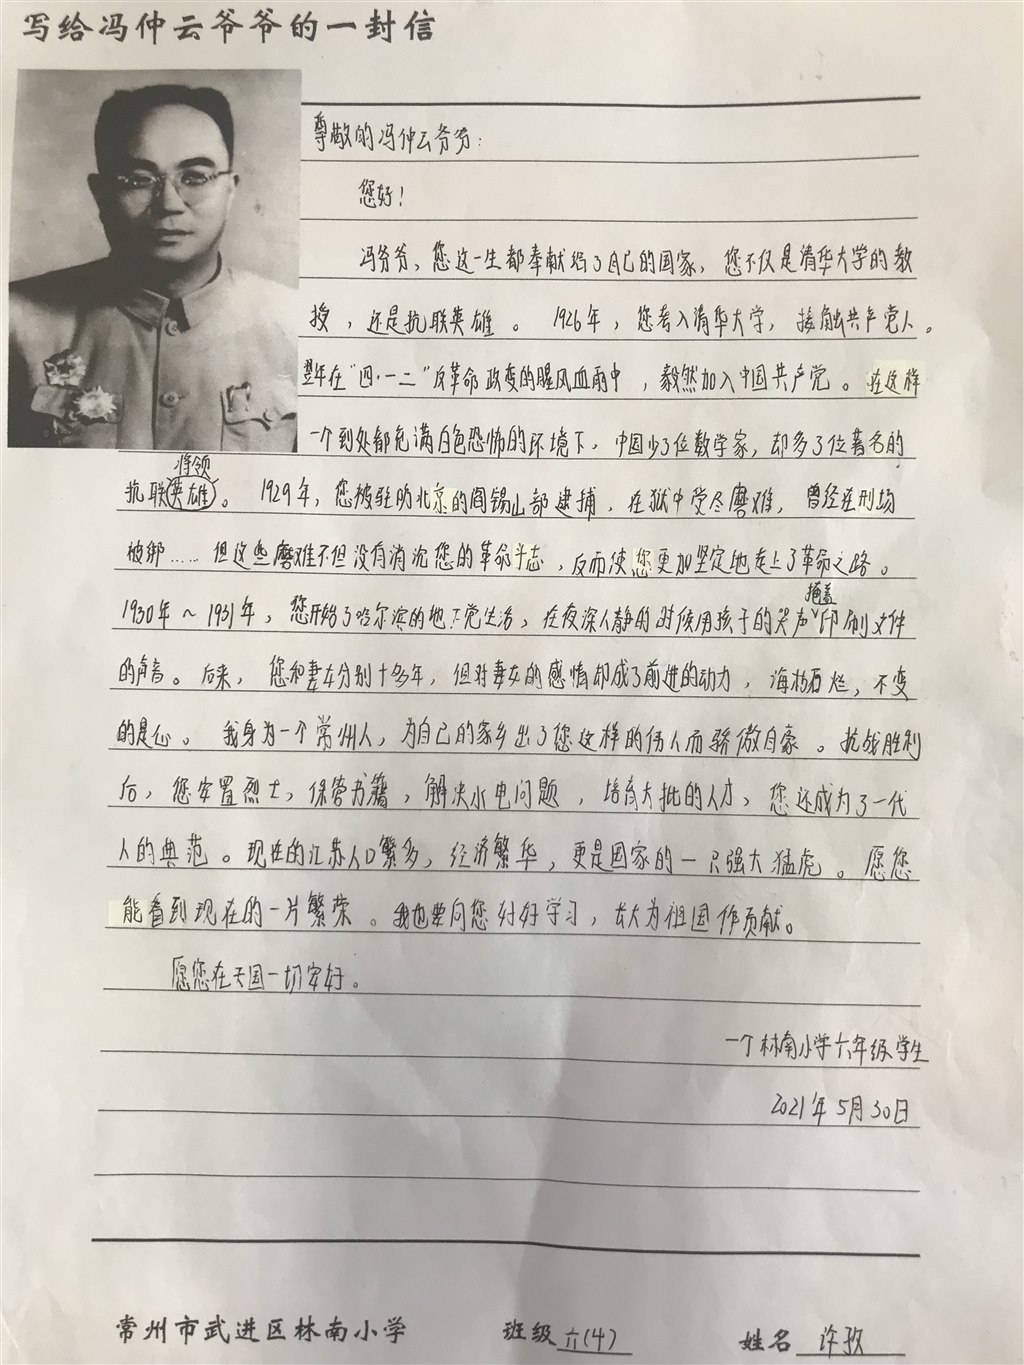 写给冯仲云爷爷的一封信
尊敬的冯仲云爷爷：
您好！
冯爷爷，您这一生都奉献给了自己的国家，您不仅是清华大学的教
授，还是抗联英雄。1926年，您考入清华大学，接触共产党人。
翌年在“四·一二”反革命政变的腥风血雨中，毅然加入中国共产党。在这样
一个到处都充满白色恐怖的环境下，中国少了位数学家，却多了位著名的
将领
抗联（英雄）。1929年，您被驻防北京的阎锡山部逮捕，在狱中受尽磨难，曾经在刑场
被绑……但这些磨难不但没有消沉您的革命斗志，反而使您更加坚定地走上了革命之路。
掩盖
1930年～1931年，您开始了哈尔滨的地下党生活，在夜深人静的时候用孩子的哭声印刷文件
的声音。后来，您和妻女分别十多年，但对妻女的感情却成了前进的动力，海枯石烂，不变
的是心。我身为一个常州人，为自己的家乡出了您这样的伟人而骄傲自豪。抗战胜利
后，您安置烈士，保管书籍，解决水电问题，培育大批的人才，您还成为了一代
人的典范。现在的江苏人口繁多，经济繁华，更是国家的一只强大猛虎。愿您
能看到现在的一片繁荣。我也要向您好好学习，长大为祖国作贡献。
愿您在天国一切安好。
一个林南小学六年级学生
2021年5月30日
常州市武进区林南小学 班级 六（4） 姓名 许孜